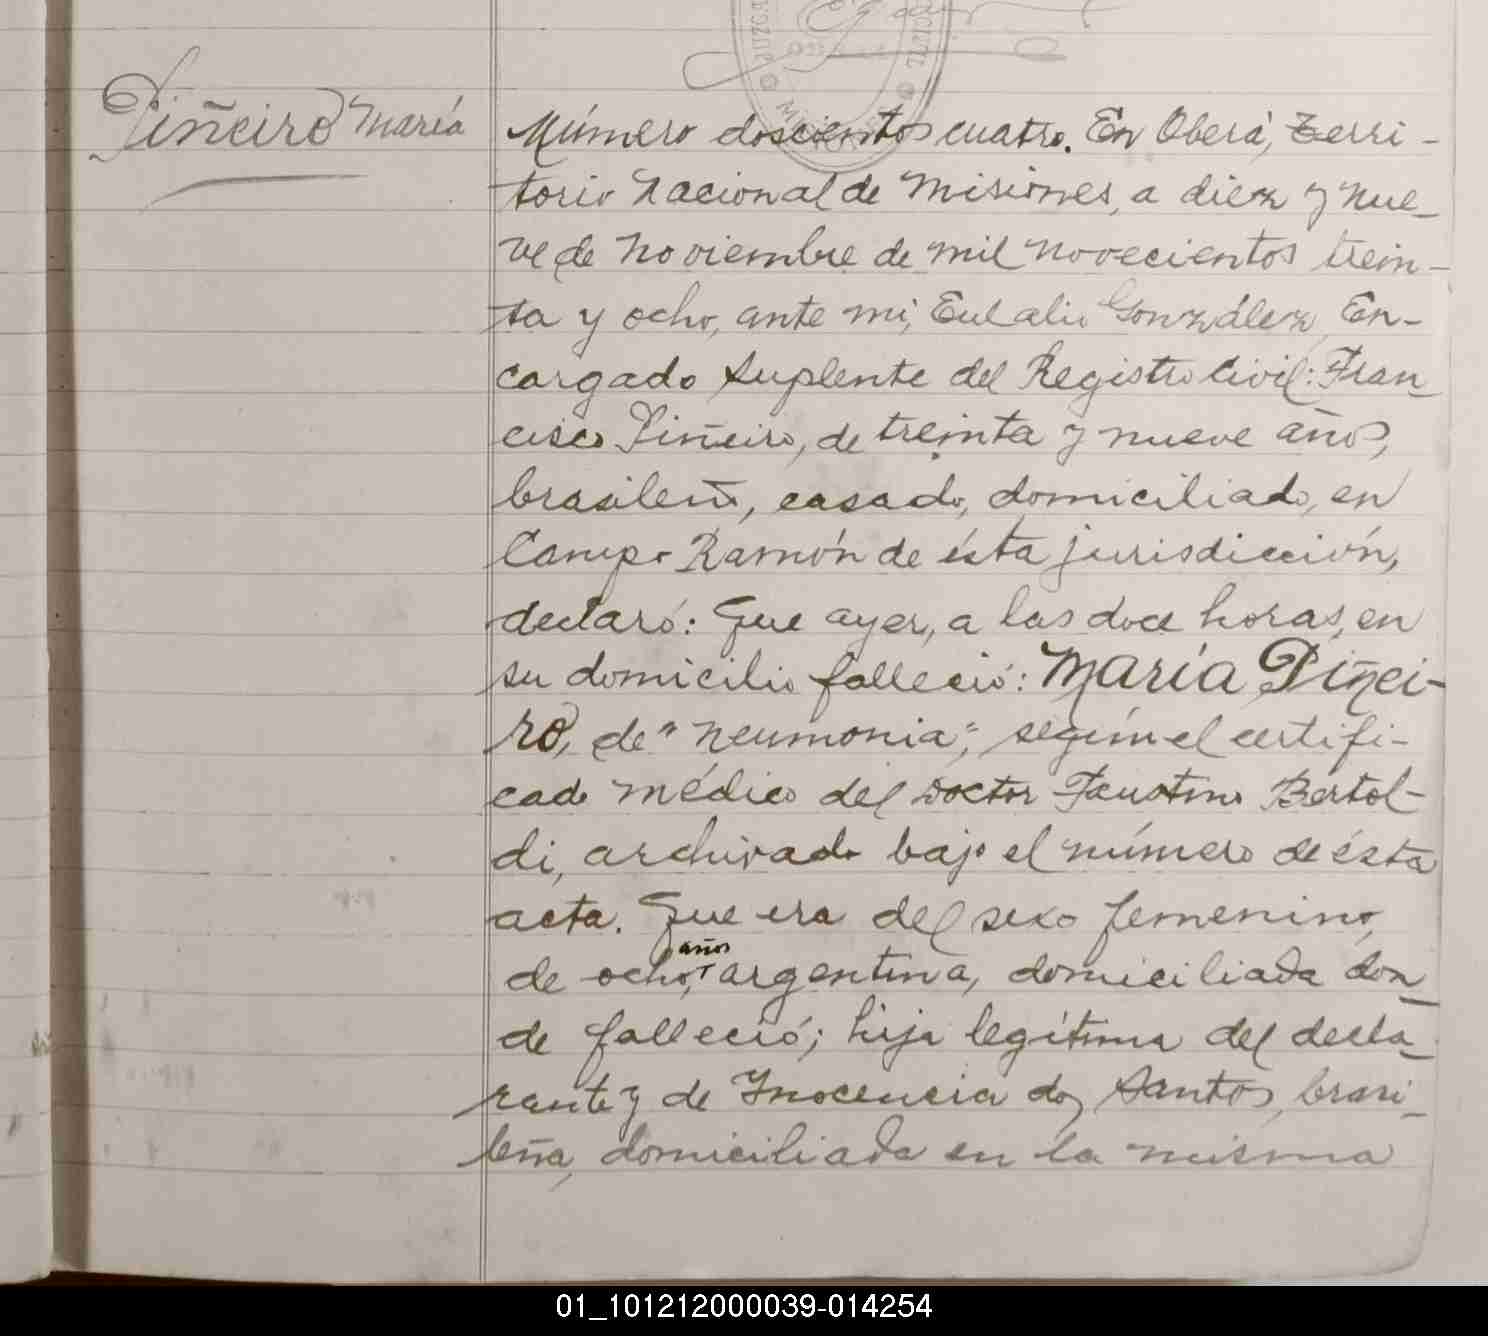 Piñeiro María
Número doscientos cuatro. En Oberá, Terri-
torio Nacional de Misiones, a diez y nue-
ve de Noviembre de mil novecientos trein-
ta y ocho, ante mi, Eulalio González, En-
cargado Suplente del Registro Civil: Fran-
cisco Piñeiro, de treinta y nueve años,
brasileño, casado, domiciliado, en
Campo Ramón de ésta jurisdicción,
declaró: Que ayer, a las doce horas, en
su domicilio falleció: María Piñei-
ro, de "neumonia", según el certifi-
cado médico del Doctor Faustino Bertol-
di, archivado bajo el número de ésta
acta. Que era del sexo femenino,
de ocho, años argentina, domiciliada don-
de falleció; hija legítima del decla-
rante y de Inocencia dos Santos, brasi-
leña, domiciliada en la misma
01_101212000039-014254